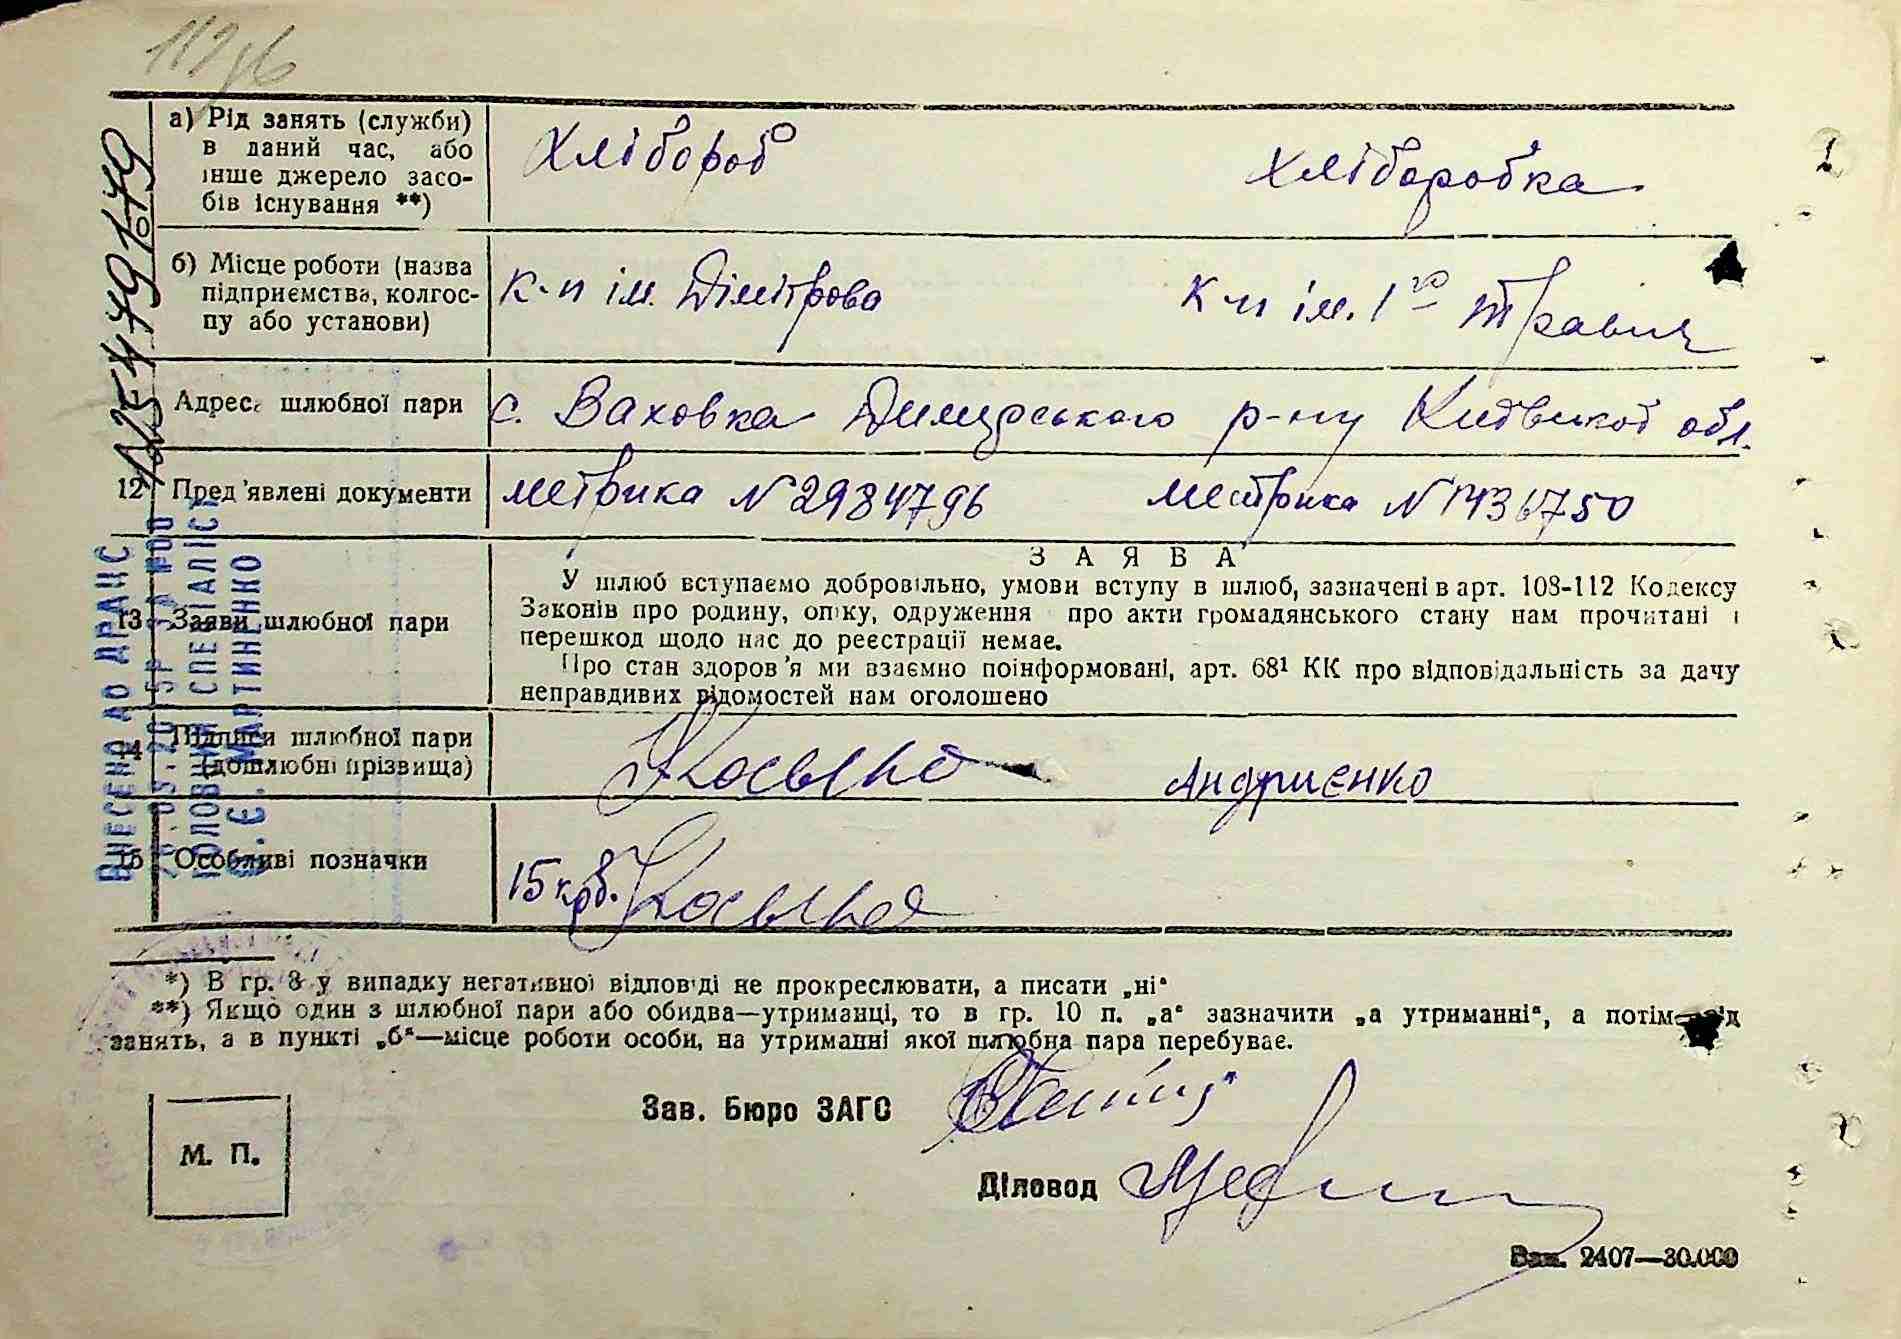 а) Рід занять (служби)
в даний час, або
інше джерело засо-
бів існування **)
Хлібороб
хліборобка
б) Місце роботи (назва
підприємства, колгос-
пу або установи)
к-п ім. Дімітрова
к-п ім. 1го Травня
Адреса шлюбної пари
с. Ваховка Димерського р-ну Київської обл.
12 Пред'явлені документи
метрика N 2984796
метрика N
13 Заяви шлюбної пари
ЗАЯВА
У шлюб вступаємо добровільно, умови вступу в шлюб, зазначені в арт. 108-112 Кодексу
Законів про родину, опіку, одруження про акти громадянського стану нам прочитані і
перешкод щодо нас до реєстрації немає.
Про стан здоров'я ми взаємно поінформовані, арт. 68¹ КК про відповідальність за дачу
неправдивих відомостей нам оголошено
14 Підписи шлюбної пари
(дошлюбні прізвища)
Андриєнко
15 Особливі позначки
15 крб.
*) В гр. 8 у випадку негативної відповіді не прокреслювати, а писати „ні“
**) Якщо один з шлюбної пари або обидва—утриманці, то в гр. 10 п. „а“ зазначити „а утриманні“, а потім рід
занять, а в пункті „б“—місце роботи особи, на утриманні якої шлюбна пара перебуває.
Зав. Бюро ЗАГС
М. П.
Діловод
Зам. 2407—30.000
ВНЕСЕНО ДО ДРАЦС
ГОЛОВНИЙ СПЕЦІАЛІСТ
МАРТИНЕНКО